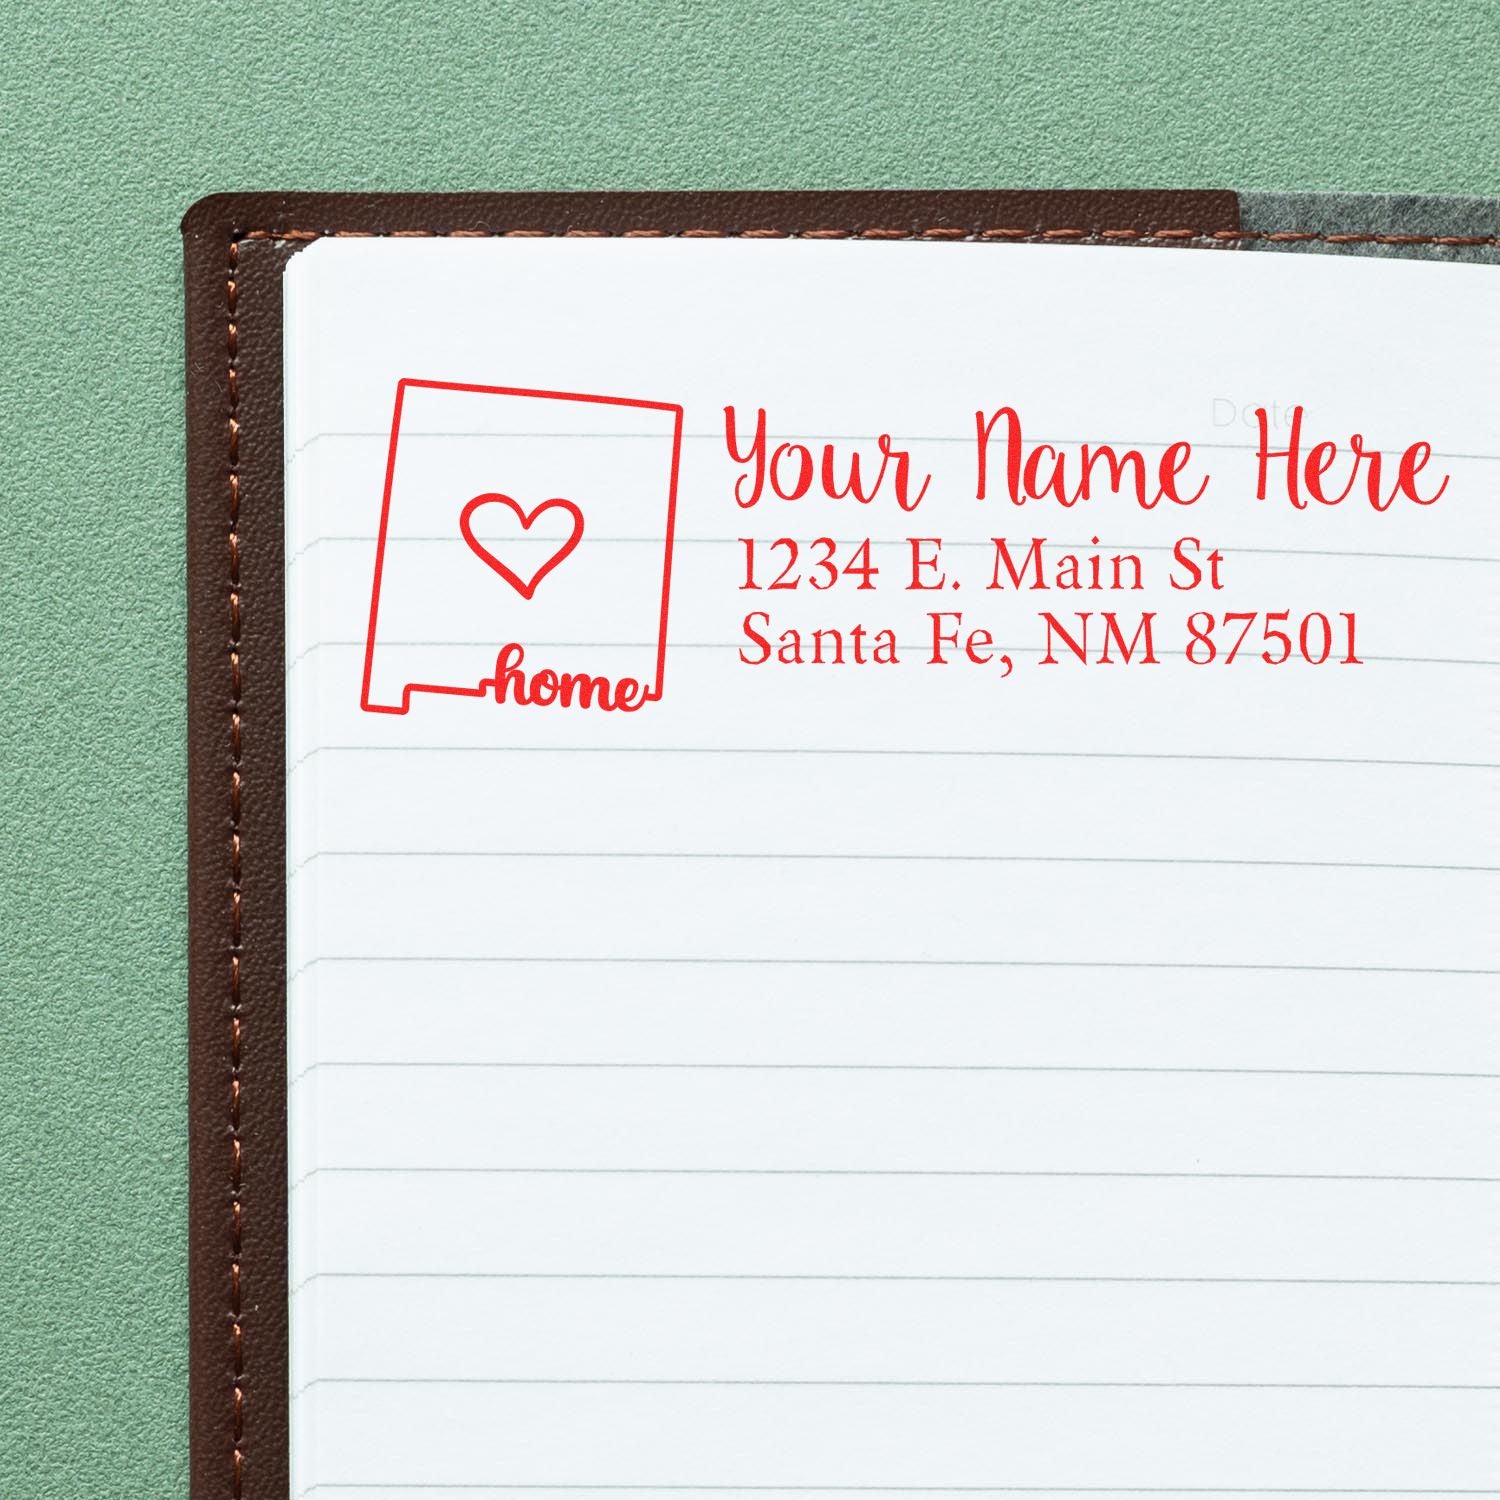 Date
Your Name Here
1234 E. Main St
Santa Fe, NM 87501
home